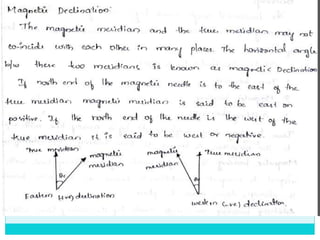 Magnetic Declination:
The magnetic meridian and the true meridian may not
co-incide with each other in many places. The horizontal angle
b/w these two meridians is known as magnetic Declination
If north end of the magnetic needle is to the east of the
true meridian magnetic meridian is said to be east or
positive. If the north end of the needle is the west of the
true meridian it is said to be west or negative.
True meridian
magnetic
meridian
Eastern (+ve) declination
magnetic
meridian
True meridian
western (-ve) declination.